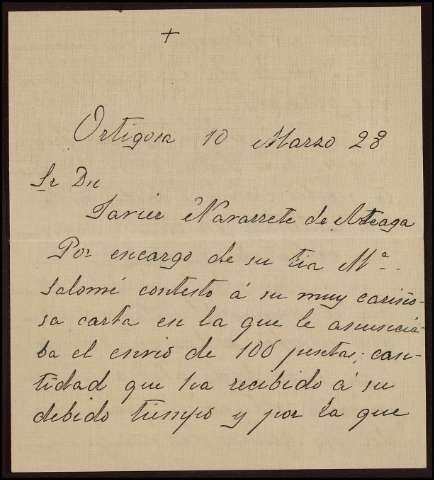 +
Ortigosa 10 Marzo 28
Sr Dn
Javier Navarrete de Arteaga
Por encargo de su tia Mª
Salomé contesto á su muy cariño-
sa carta en la que le anuncia-
ba el envio de 100 pesetas; can-
tidad que ha recibido á su
debido tiempo y por la que